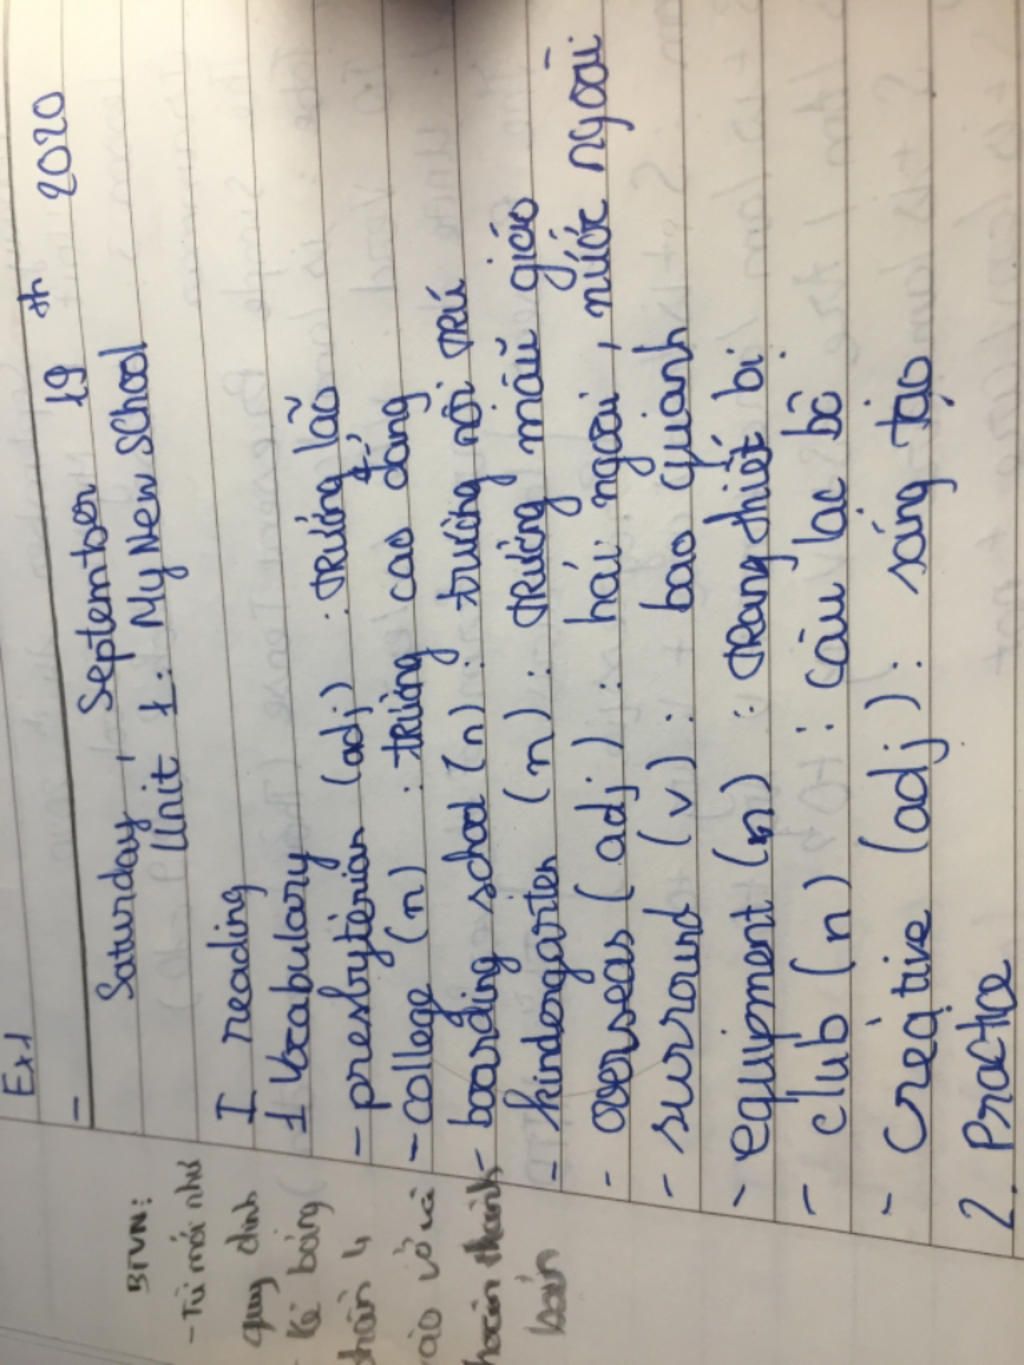 Ex1
Saturday, September 19th 2020
Unit 1: My New School
I reading
1 Vocabulary
- presbyterian (adj) : trường lão
- college (n) : trường cao đẳng
- boarding school (n): trường nội trú
- kindergarten (n): trường mẫu giáo
- overseas (adj): hải ngoại, nước ngoài
- surround (v): bao quanh
- equipment (n) : trang thiết bị
- club (n) : câu lạc bộ
- creative (adj): sáng tạo
2. Practice
BTVN:
- Từ mới như
quy định
- Kẻ bảng
phần 4
vào vở và
hoàn thành